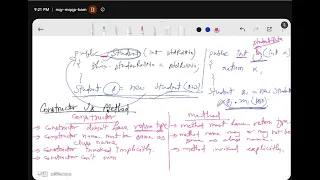 9:21 PM
public Student (int stdRollNo) {
this.studentRollNo = stdRollNo;
}
Student s = new Student (101)
public int m (int x) {
return x;
}
Student s1 = new Student
s1.m(100)
Constructor Vs Method
Constructor
→ Constructor doesn't have return type
→ Constructor name must be same as class name
→ Constructor invoked implicitly.
→ Constructor can't
method
→ method must have return type
→ method name may or may not be same as class name.
→ method invoked explicitly.